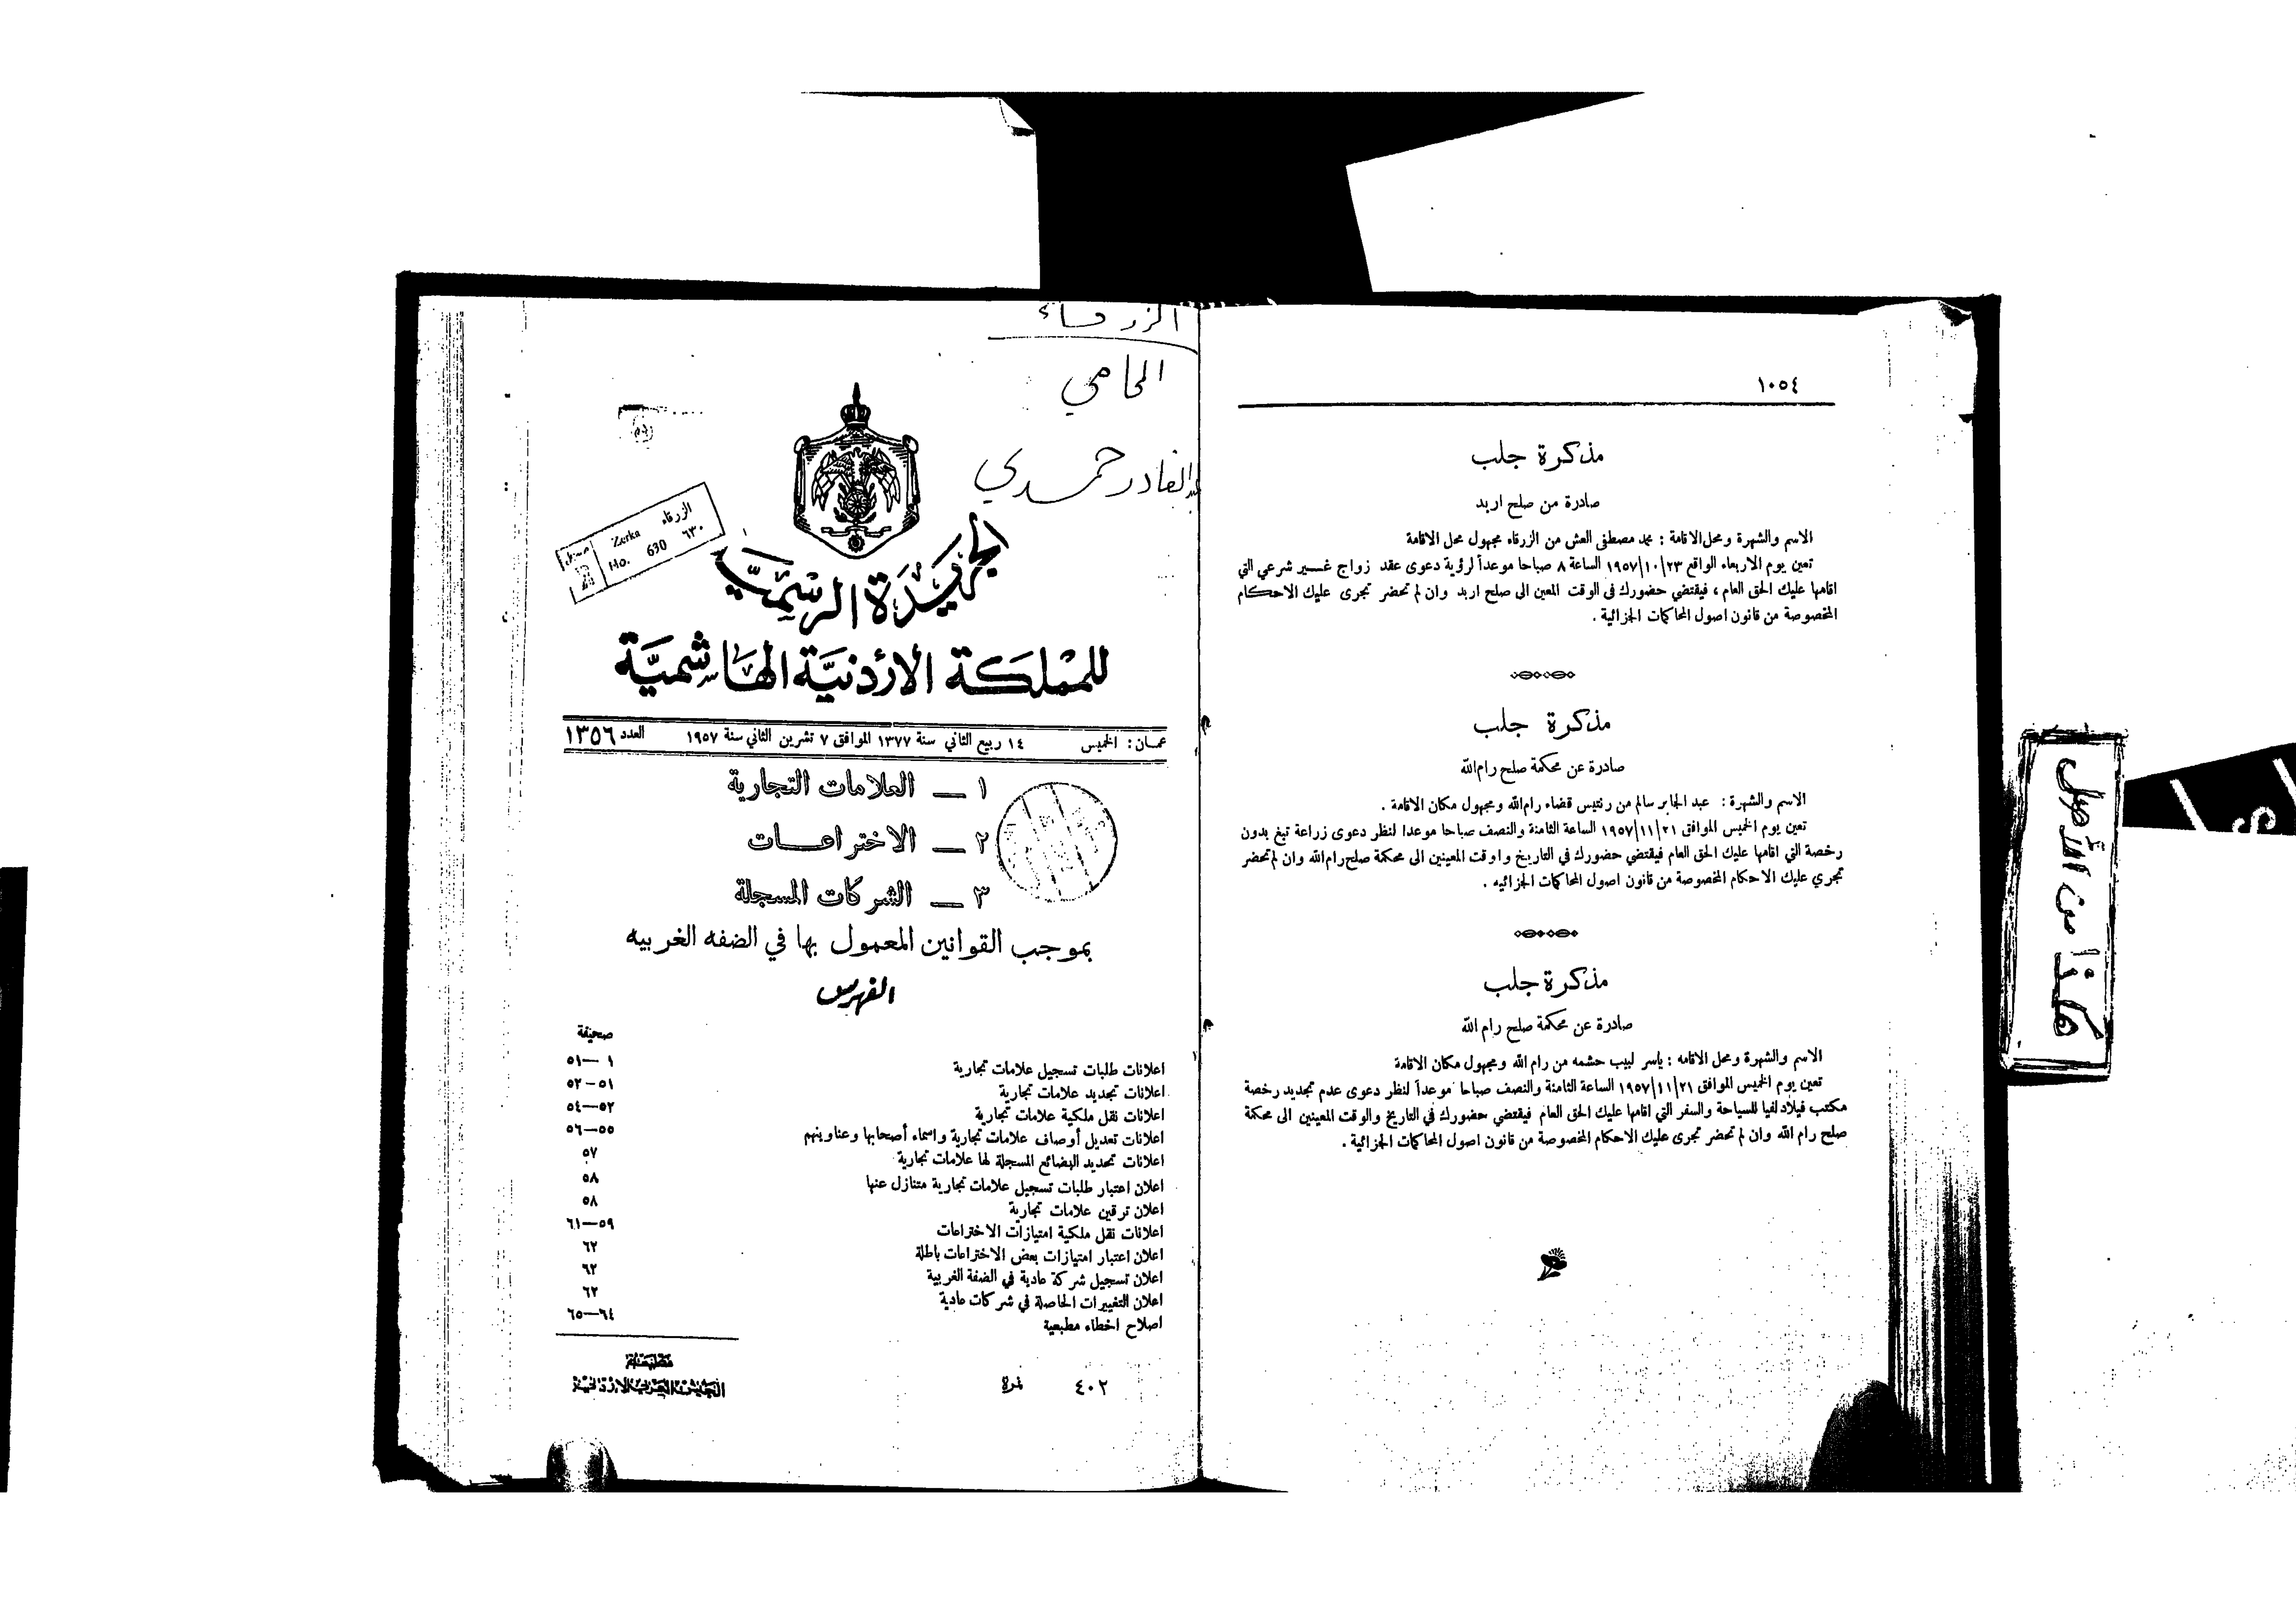 ١٠٥٤
مذكرة جلب
صادرة من صلح اربد
الاسم والشهرة ومحل الاقامة : محمد مصطفى العش من الزرقاء مجهول محل الاقامة
تعين يوم الاربعاء الواقع ٢٣/١٠/١٩٥٧ الساعة ٨ صباحا موعداً لرؤية دعوى عقد زواج غير شرعي التي
اقامها عليك الحق العام ، فيقتضي حضورك في الوقت المعين الى صلح اربد وان لم تحضر تجرى عليك الاحكام
المخصوصة من قانون اصول المحاكمات الجزائية .
مذكرة جلب
صادرة عن محكمة صلح رام الله
الاسم والشهرة : عبد الجابر سالم من رنتيس قضاء رام الله ومجهول مكان الاقامة .
تعين يوم الخميس الموافق ٢١/١١/١٩٥٧ الساعة الثامنة والنصف صباحا موعدا لنظر دعوى زراعة تبغ بدون
رخصة التي اقامها عليك الحق العام فيقتضي حضورك في التاريخ واوقت المعينين الى محكمة صلح رام الله وان لم تحضر
تجري عليك الاحكام المخصوصة من قانون اصول المحاكمات الجزائيه .
مذكرة جلب
صادرة عن محكمة صلح رام الله
الاسم والشهرة ومحل الاقامه : ياسر لبيب حشمه من رام الله ومجهول مكان الاقامة
تعين يوم الخميس الموافق ٢١/١١/١٩٥٧ الساعة الثامنة والنصف صباحا موعداً لنظر دعوى عدم تجديد رخصة
مكتب فيلادلفيا للسياحة والسفر التي اقامها عليك الحق العام فيقتضي حضورك في التاريخ والوقت المعينين الى محكمة
صلح رام الله وان لم تحضر تجرى عليك الاحكام المخصوصة من قانون اصول المحاكمات الجزائية .
هكذا من الأصل
الزرقاء
المحامي
عبد القادر حمدي
الزرقاء ٦٣٠
Zerka
No. 630
الجريدة الرسمية
للمملكة الأردنية الهاشمية
عمان : الخميس ١٤ ربيع الثاني سنة ١٣٧٧ الموافق ٧ تشرين الثاني سنة ١٩٥٧ العدد ١٣٥٦
١ — العلامات التجارية
٢ — الاختراعات
٣ — الشركات المسجلة
بموجب القوانين المعمول بها في الضفه الغربيه
الفهرس
صحيفة
اعلانات طلبات تسجيل علامات تجارية ١—٥١
اعلانات تجديد علامات تجارية ٥١—٥٢
اعلانات نقل ملكية علامات تجارية ٥٢—٥٤
اعلانات تعديل أوصاف علامات تجارية واسماء أصحابها وعناوينهم ٥٥—٥٦
اعلانات تحديد البضائع المسجلة لها علامات تجارية ٥٧
اعلان اعتبار طلبات تسجيل علامات تجارية متنازل عنها ٥٨
اعلان ترقين علامات تجارية ٥٨
اعلانات نقل ملكية امتيازات الاختراعات ٥٩—٦١
اعلان اعتبار امتيازات بعض الاختراعات باطلة ٦٢
اعلان تسجيل شركة عادية في الضفة الغربية ٦٢
اعلان التغييرات الحاصلة في شركات عادية ٦٢
اصلاح اخطاء مطبعية ٦٤—٦٥
نمرة ٤٠٢